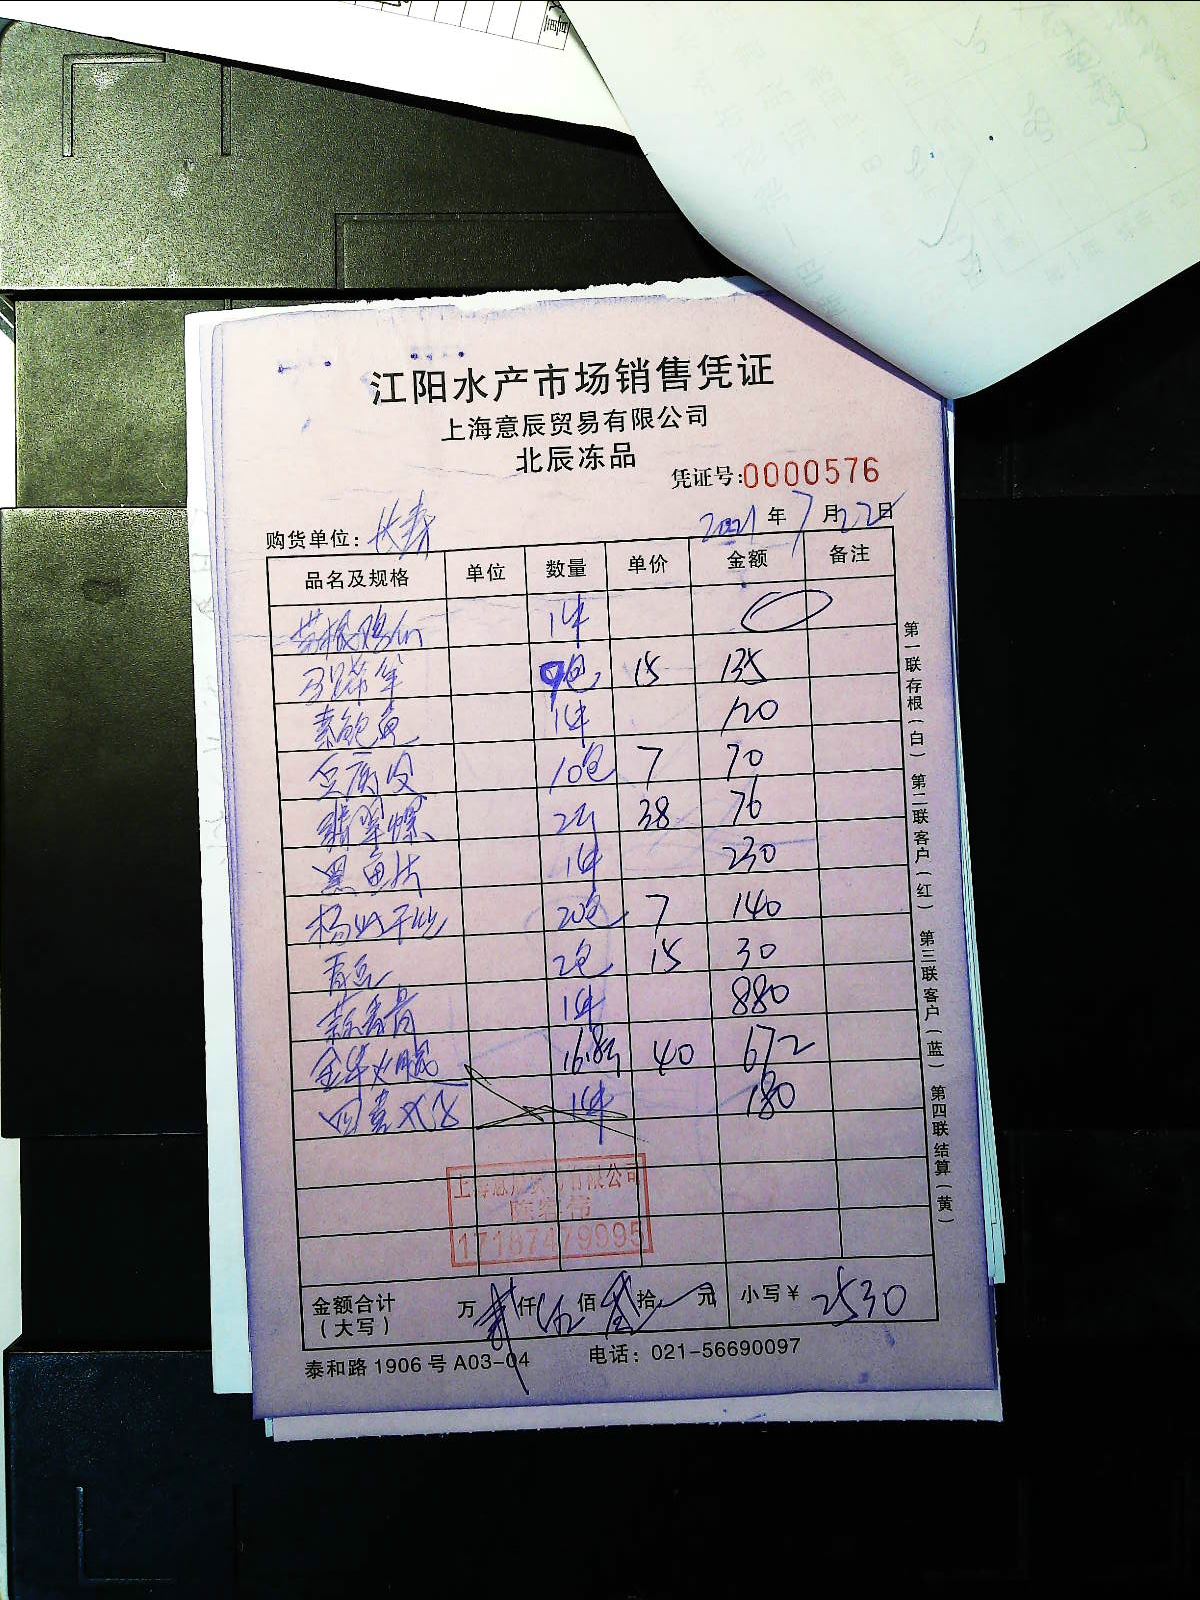 江阳水产市场销售凭证
上海意辰贸易有限公司
北辰冻品
凭证号:0000576
购货单位: 长寿 2021 年 7 月 22 日
品名及规格 单位 数量 单价 金额 备注
1件
9包 15 135
素鲍鱼 1件 120
豆腐皮 10包 7 70
翡翠螺 2斤 38 76
黑鱼片 1件 230
杨州干丝 20包 7 140
青豆 2包 15 30
蒜香骨 1件 880
金华火腿 16.8斤 40 672
四喜 1件 180
17187479995
金额合计 万 贰 仟 伍 佰 叁 拾 元 小写¥ 2530
(大写)
泰和路1906号A03-04 电话: 021-56690097
第一联存根(白) 第二联客户(红) 第三联客户(蓝) 第四联结算(黄)